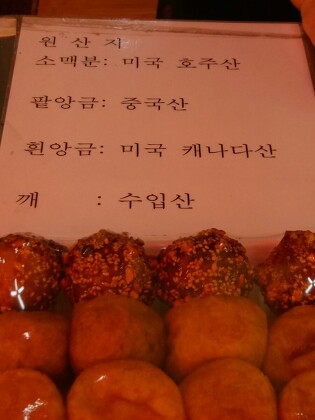 원 산 지
소맥분: 미국 호주산
팥앙금: 중국산
흰앙금: 미국 캐나다산
깨 : 수입산